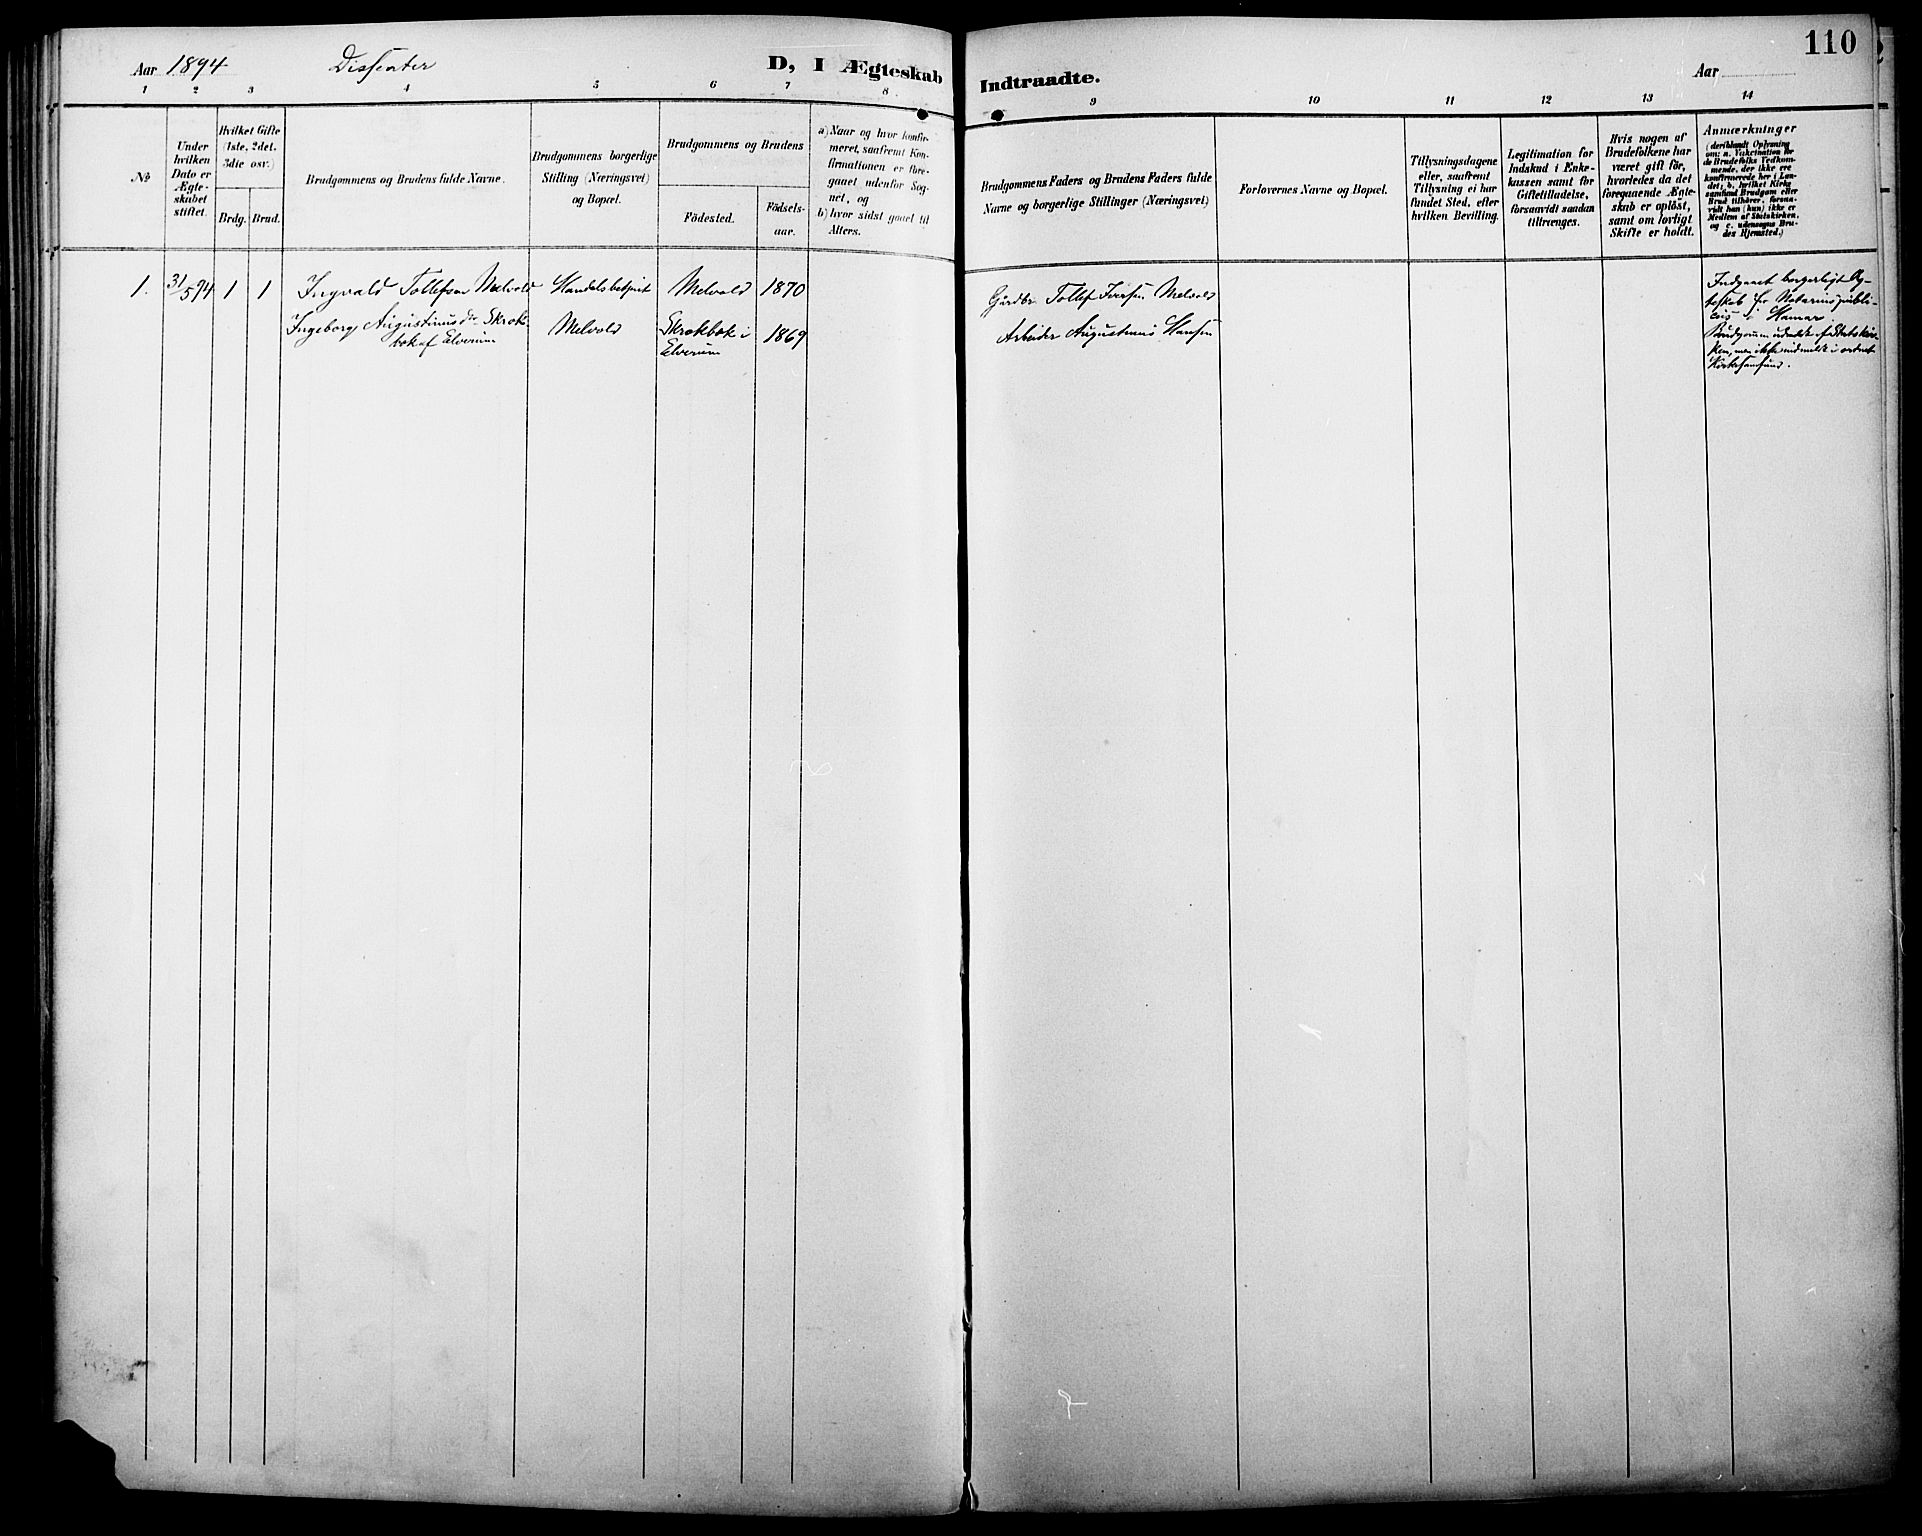 110
Aar 1894 Dissenter D, I Ægteskab Indtraadte. Aar
1 2 3 4 5 6 7 8 9 10 11 12 13 14
№
Under
hvilken
Dato er
Ægte-
skabet
stiftet.
Hvilket Gifte
(1ste, 2det.
3die osv.)
Brdg. Brud.
Brudgommens og Brudens fulde Navne.
Brudgommens borgerlige
Stilling (Næringsvei)
og Bopæl.
Brudgommens og Brudens
Födested.
Födsels-
aar.
a) Naar og hvor konfir-
meret, saafremt Kon-
firmationen er fore-
gaaet udenfor Sog-
net, og
b) hvor sidst gaaet til
Alters.
Brudgommens Faders og Brudens Faders fulde
Navne og borgerlige Stillinger (Næringsvei)
Forlovernes Navne og Bopæl.
Tillysningsdagene
eller, saafremt
Tillysning ei har
fundet Sted, efter
hvilken Bevilling.
Legitimation for
Indskud i Enke-
kassen samt for
Giftetilladelse,
forsaavidt saadan
tiltrænges.
Hvis nogen af
Brudefolkene har
været gift för,
hvorledes da det
foregaaende Ægte-
skab er oplöst,
samt om lovligt
Skifte er holdt.
Anmærkninger
(deriblandt Oplysning
om: a. Vakcination for
de Brudefolks Vedkom-
mende, der ikke ere
konfirmerede her i Lan-
det; b. hvilket Kirke
samfund Brudgom eller
Brud tilhörer, forsaa-
vidt han (hun) ikke er
Medlem af Statskirken,
og c. udensogns Bru-
des Hjemsted.)
1. 31/5 94 1 1 Ingvald Tollefsen Melvold Handelsbetjent Melvold 1870
Ingeborg Augustinusdr Skrok- Melvold Skrokbæk i 1869
bæk af Elverum Elverum
Gårdbr Tollef Iversen Melvold
Arbeider Augustinus Hansen
Indgaaet borgerligt Æg-
teskab for Notarius publi-
cus i Hamar.
Brudgommen udmeldt af Statskir-
ken, men ikke indmeldt i ordnet
Kirkesamfund.